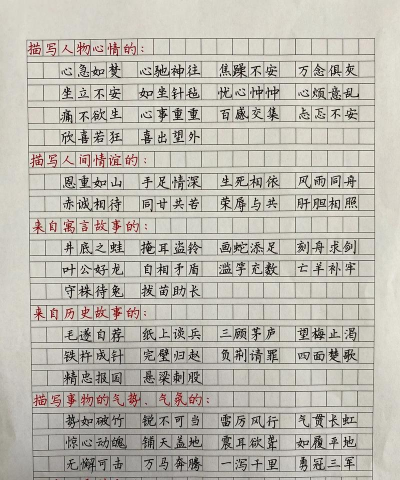 描写人物心情的:
心急如焚 心驰神往 焦躁不安 万念俱灰
坐立不安 如坐针毡 忧心忡忡 心烦意乱
痛不欲生 心事重重 百感交集 忐忑不安
欣喜若狂 喜出望外
描写人间情谊的:
恩重如山 手足情深 生死相依 风雨同舟
赤诚相待 同甘共苦 荣辱与共 肝胆相照
来自寓言故事的:
井底之蛙 掩耳盗铃 画蛇添足 刻舟求剑
叶公好龙 自相矛盾 滥竽充数 亡羊补牢
守株待兔 拔苗助长
来自历史故事的:
毛遂自荐 纸上谈兵 三顾茅庐 望梅止渴
铁杵成针 完璧归赵 负荆请罪 四面楚歌
精忠报国 悬梁刺股
描写事物的气势、气氛的:
势如破竹 锐不可当 雷厉风行 气贯长虹
惊心动魄 铺天盖地 震耳欲聋 如履平地
无懈可击 万马奔腾 一泻千里 勇冠三军